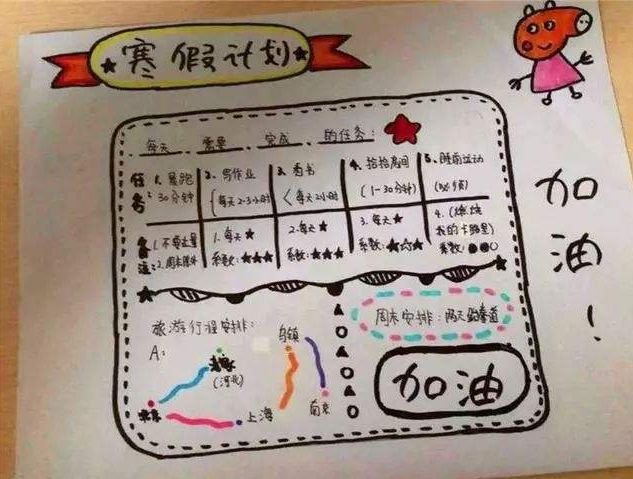 寒假计划
每天 需要 完成 的任务:
任务:
1. 晨跑 30分钟
2. 写作业 (每天2-3小时)
3. 看书 (每天2小时)
4. 拾拾房间 (1-30分钟)
5. 睡前运动
备注:
1. 不要过量
2. 周末
1. 每天★
系数:★★★
2. 每天★
系数:★★★
3. 每天★
系数:★☆★
4. (燃烧我的卡路里)
系数:●●○
旅游行程安排:
A:
(河北)
北京
上海
乌镇
南京
周末安排: 两天
加油
加油!